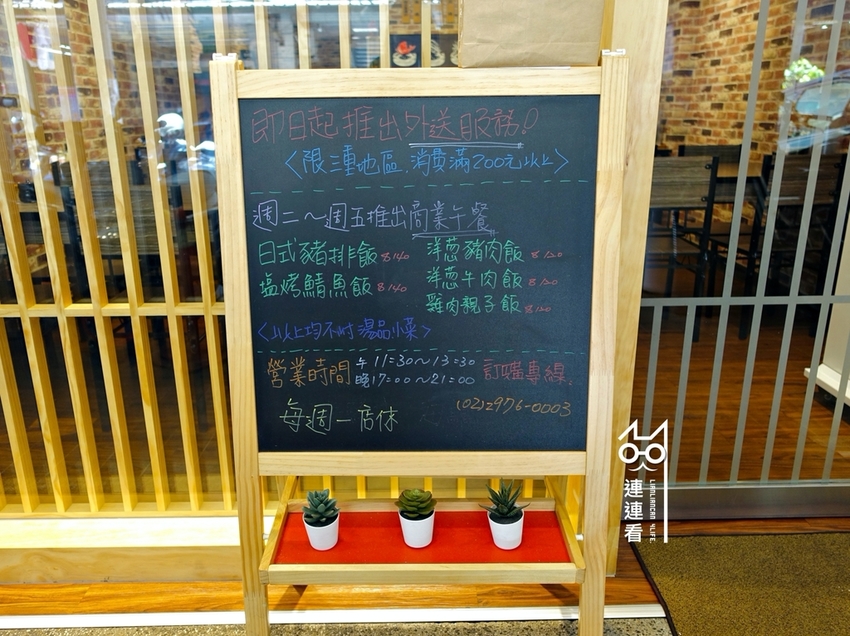 即日起推出外送服務!
<限三重地區,消費滿200元以上>
週二~週五推出商業午餐
日式豬排飯 $140 洋蔥豬肉飯 $120
塩烤鯖魚飯 $140 洋蔥牛肉飯 $120
雞肉親子飯 $120
<以上均不附湯品小菜>
營業時間 午11:30~13:30 訂購專線:
晚17:00~21:00
(02)2976-0003
每週一店休
連連看
LIANLIANCAN 4LIFE.